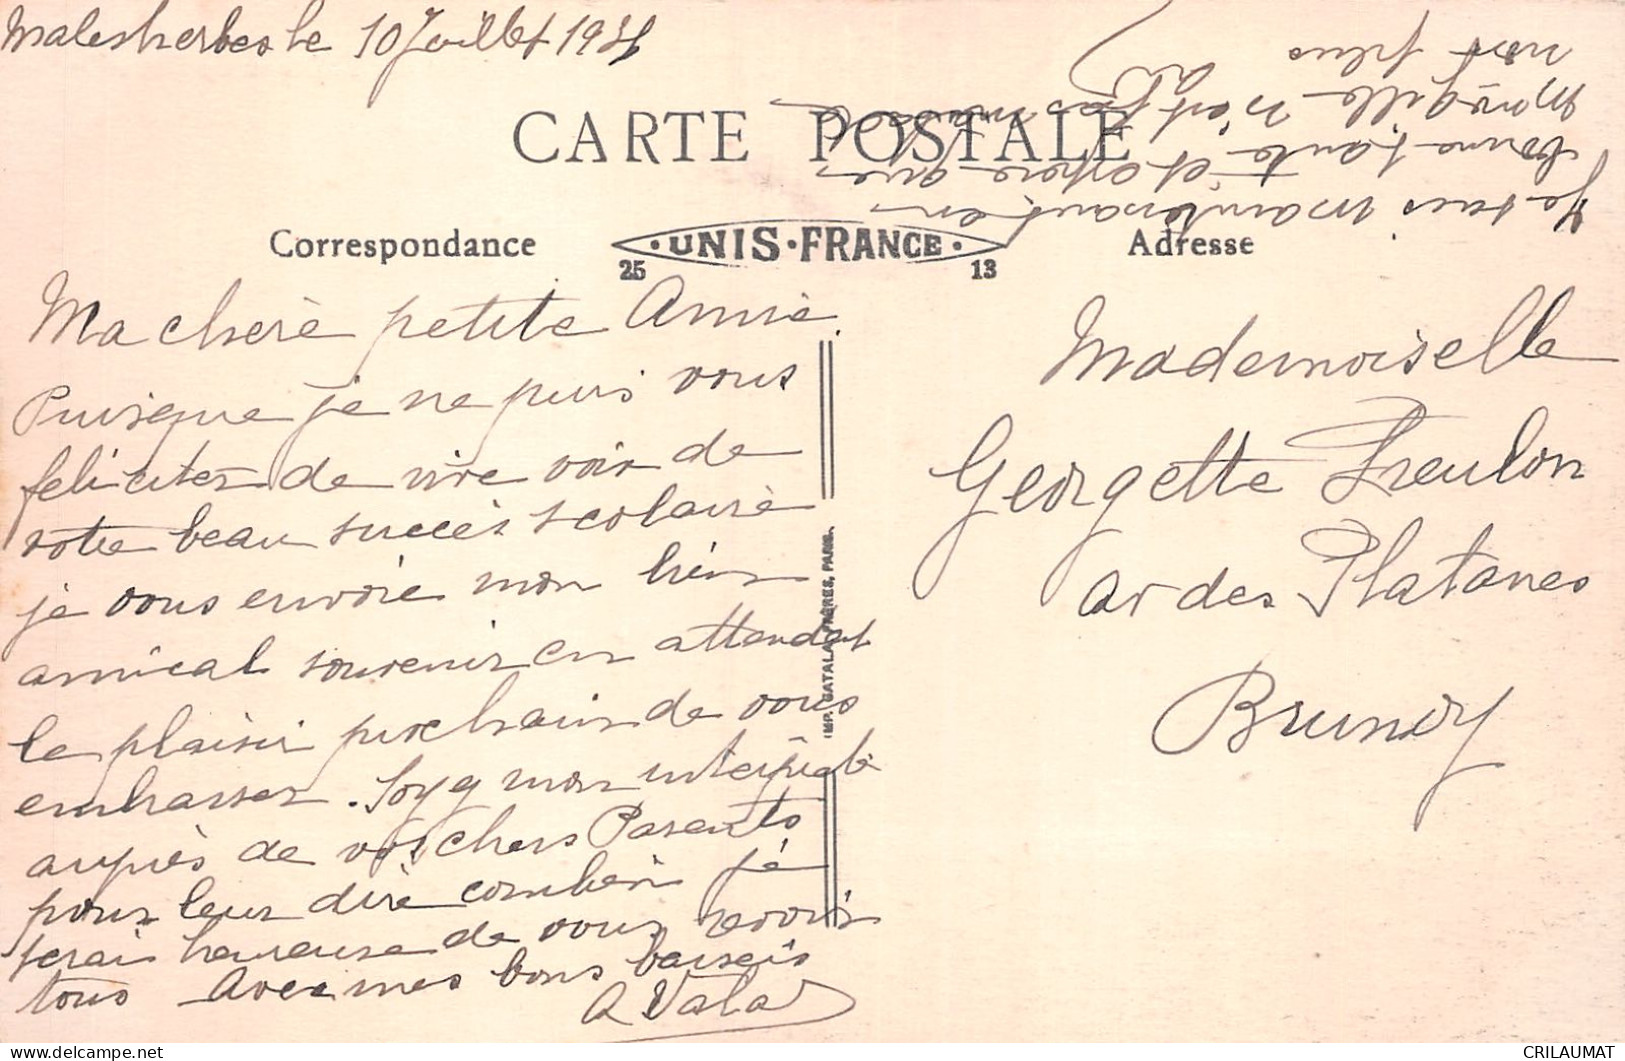 Malesherbes le 10 Juillet 1931
CARTE POSTALE
Correspondance
UNIS-FRANCE
25 13
Adresse
Ma chère petite Amie
Puisque je ne puis vous
feliciter de vive voix de
votre beau succès scolaire
je vous envoie mon bien
amical souvenir en attendant
le plaisir prochain de vous
embrasser. Soyez mon interprète
auprès de vos chers Parents
pour leur dire combien je
serais heureuse de vous revoir
tous Avec mes bons baisers
A Vala
IMP. CATALA FRÈRES, PARIS.
Mademoiselle
Georgette Freulon
av des Platanes
Brunoy
Je suis maintenant en
bonne santé et espère que
n'est pas
non plus
CRILAUMAT